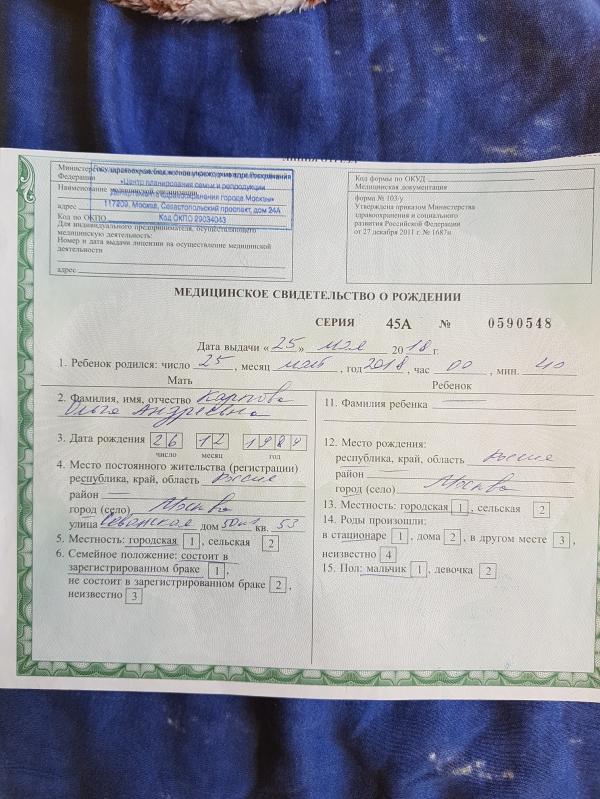 Министерство здравоохранения
Федерации
Государственное бюджетное учреждение здравоохранения
«Центр планирования семьи и репродукции
Департамента здравоохранения города Москвы»
117209, Москва, Севастопольский проспект, дом 24А
Код ОКПО 29034043
Наименование медицинской организации
адрес
Код по ОКПО
Для индивидуального предпринимателя, осуществляющего
медицинскую деятельность:
Номер и дата выдачи лицензии на осуществление медицинской
деятельности
адрес
Код формы по ОКУД
Медицинская документация
форма № 103/у
Утверждена приказом Министерства
здравоохранения и социального
развития Российской Федерации
от 27 декабря 2011 г. № 1687н
МЕДИЦИНСКОЕ СВИДЕТЕЛЬСТВО О РОЖДЕНИИ
СЕРИЯ 45А № 0590548
Дата выдачи «25» мая 2018 г.
1. Ребенок родился: число 25, месяц май, год 2018, час 00, мин. 40
Мать
2. Фамилия, имя, отчество Карпова
Ольга Андреевна
3. Дата рождения 26 12 1989
число месяц год
4. Место постоянного жительства (регистрации)
республика, край, область Россия
район —
город (село) Москва
улица дом 50к1 кв. 53
5. Местность: городская 1, сельская 2
6. Семейное положение: состоит в
зарегистрированном браке 1,
не состоит в зарегистрированном браке 2,
неизвестно 3
Ребенок
11. Фамилия ребенка —
12. Место рождения:
республика, край, область Россия
район —
город (село) Москва
13. Местность: городская 1, сельская 2
14. Роды произошли:
в стационаре 1, дома 2, в другом месте 3,
неизвестно 4
15. Пол: мальчик 1, девочка 2